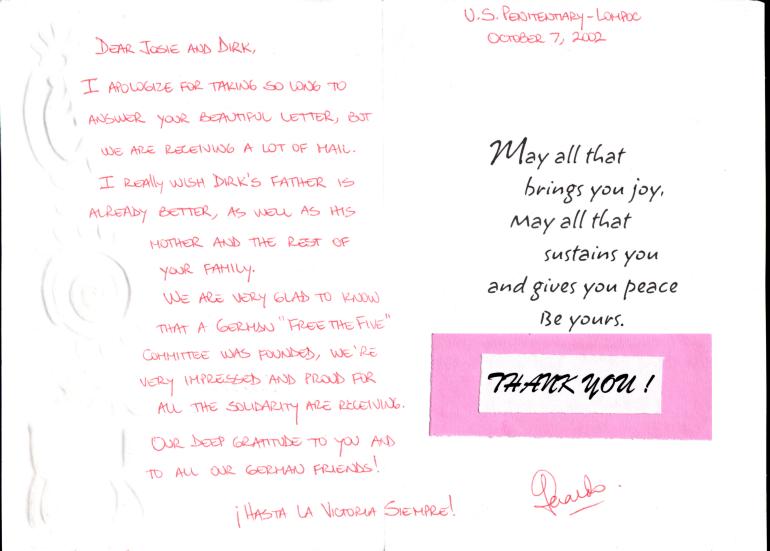 DEAR JOSIE AND DIRK,
I APOLOGIZE FOR TAKING SO LONG TO
ANSWER YOUR BEAUTIFUL LETTER, BUT
WE ARE RECEIVING A LOT OF MAIL.
I REALLY WISH DIRK'S FATHER IS
ALREADY BETTER, AS WELL AS HIS
MOTHER AND THE REST OF
YOUR FAMILY.
WE ARE VERY GLAD TO KNOW
THAT A GERMAN "FREE THE FIVE"
COMMITTEE WAS FOUNDED, WE'RE
VERY IMPRESSED AND PROUD FOR
ALL THE SOLIDARITY ARE RECEIVING.
OUR DEEP GRATITUDE TO YOU AND
TO ALL OUR GERMAN FRIENDS!
¡HASTA LA VICTORIA SIEMPRE!
U.S. PENITENTIARY - LOMPOC
OCTOBER 7, 2002
May all that
brings you joy,
May all that
sustains you
and gives you peace
Be yours.
THANK YOU !
Gerardo.